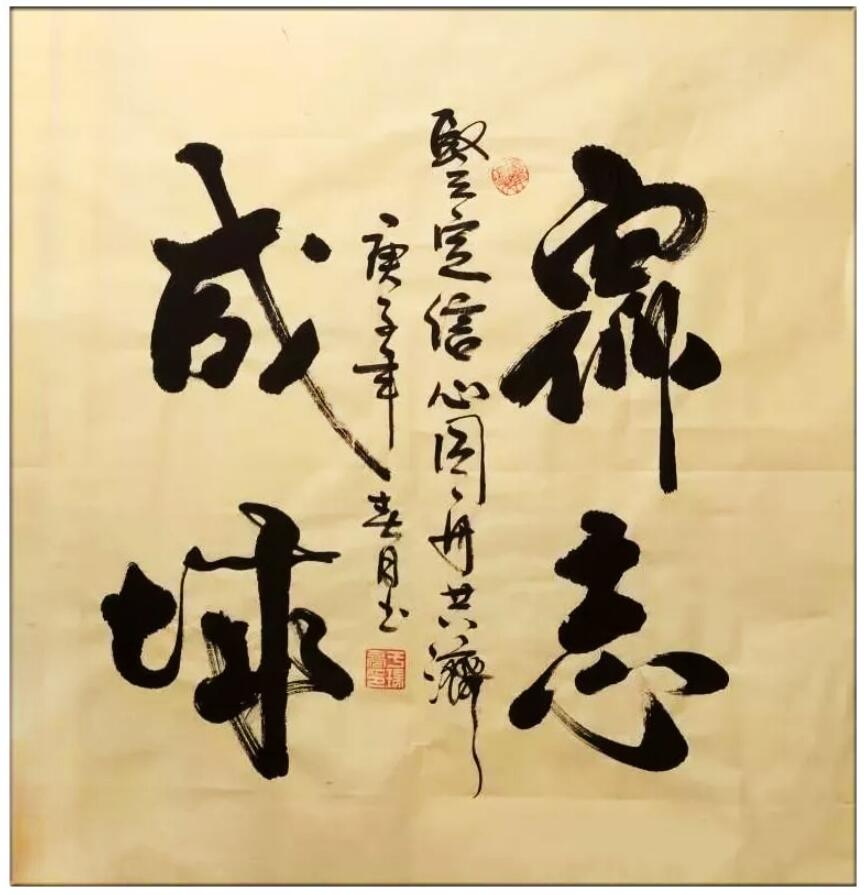 衆志
堅定信心同舟共濟
庚子年春月书
成城